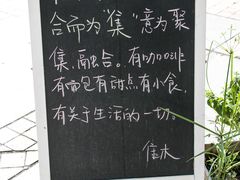 合而为"集"意为聚
集、融合。有咖啡
有面包有甜点有小食，
有关于生活的一切。
隹木